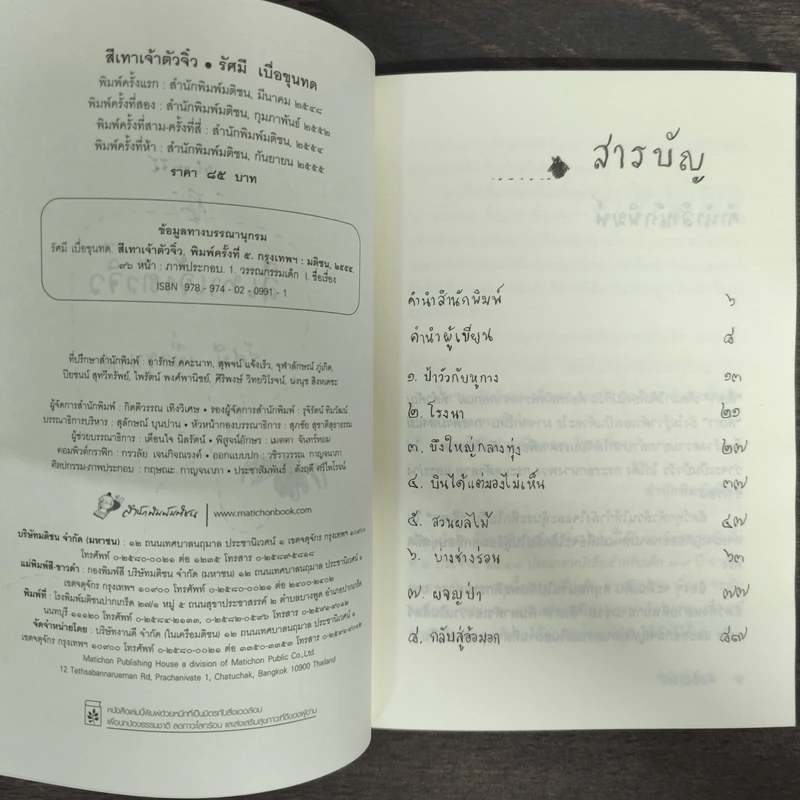 สีเทาเจ้าตัวจิ๋ว ● รัศมี เผื่อขุนทด
พิมพ์ครั้งแรก : สำนักพิมพ์มติชน, มีนาคม ๒๕๔๘
พิมพ์ครั้งที่สอง : สำนักพิมพ์มติชน, กุมภาพันธ์ ๒๕๕๒
พิมพ์ครั้งที่สาม-ครั้งที่สี่ : สำนักพิมพ์มติชน, ๒๕๕๔
พิมพ์ครั้งที่ห้า : สำนักพิมพ์มติชน, กันยายน ๒๕๕๕
ราคา ๘๕ บาท
ข้อมูลทางบรรณานุกรม
รัศมี เผื่อขุนทด. สีเทาเจ้าตัวจิ๋ว. พิมพ์ครั้งที่ ๕. กรุงเทพฯ : มติชน, ๒๕๕๕.
๙๖ หน้า : ภาพประกอบ. 1. วรรณกรรมเด็ก I. ชื่อเรื่อง
ISBN 978 - 974 - 02 - 0991 - 1
ที่ปรึกษาสำนักพิมพ์ : อารักษ์ คคะนาท, สุพจน์ แจ้งเร็ว, จุฬาลักษณ์ ภู่เกิด,
ปิยชนน์ สุทวีทรัพย์, ไพรัตน์ พงศ์พานิชย์, ศิริพงษ์ วิทยวิโรจน์, นงนุช สิงหเดชะ
ผู้จัดการสำนักพิมพ์ : กิตติวรรณ เทิงวิเศษ • รองผู้จัดการสำนักพิมพ์ : รุจิรัตน์ ทิมวัฒน์
บรรณาธิการบริหาร : สุลักษณ์ บุนปาน • หัวหน้ากองบรรณาธิการ : สุภชัย สุชาติสุธาธรรม
ผู้ช่วยบรรณาธิการ : เตือนใจ นิลรัตน์ • พิสูจน์อักษร : เมตตา จันทร์หอม
คอมพิวต์กราฟิก : กรวลัย เจนกิจณรงค์ • ออกแบบปก : วชิราวรรณ กาญจนาภา
ศิลปกรรม-ภาพประกอบ : กฤษณะ กาญจนาภา • ประชาสัมพันธ์ : ตังฤดี ศรีไพโรจน์
สำนักพิมพ์มติชน www.matichonbook.com
บริษัทมติชน จำกัด (มหาชน) : ๑๒ ถนนเทศบาลนฤมาล ประชานิเวศน์ ๑ เขตจตุจักร กรุงเทพฯ ๑๐๙๐๐
โทรศัพท์ ๐-๒๕๘๐-๐๐๒๑ ต่อ ๑๒๓๕ โทรสาร ๐-๒๕๘๙-๕๘๑๘
แม่พิมพ์สี-ขาวดำ : กองพิมพ์สี บริษัทมติชน จำกัด (มหาชน) ๑๒ ถนนเทศบาลนฤมาล ประชานิเวศน์ ๑
เขตจตุจักร กรุงเทพฯ ๑๐๙๐๐ โทรศัพท์ ๐-๒๕๘๐-๐๐๒๑ ต่อ ๒๔๐๐-๒๔๐๒
พิมพ์ที่ : โรงพิมพ์มติชนปากเกร็ด ๒๗/๑ หมู่ ๕ ถนนสุขาประชาสรรค์ ๒ ตำบลบางพูด อำเภอปากเกร็ด
นนทบุรี ๑๑๑๒๐ โทรศัพท์ ๐-๒๕๘๔-๒๑๓๓, ๐-๒๕๘๒-๐๕๙๖ โทรสาร
จัดจำหน่ายโดย : บริษัทงานดี จำกัด (ในเครือมติชน) ๑๒ ถนนเทศบาลนฤมาล ประชานิเวศน์ ๑
เขตจตุจักร กรุงเทพฯ ๑๐๙๐๐ โทรศัพท์ ๐-๒๕๘๐-๐๐๒๑ ต่อ ๓๓๕๐-๓๓๕๓ โทรสาร
Matichon Publishing House a division of Matichon Public Co.,Ltd.
12 Tethsabannarueman Rd, Prachanivate 1, Chatuchak, Bangkok 10900 Thailand
หนังสือเล่มนี้พิมพ์ด้วยหมึกที่เป็นมิตรกับสิ่งแวดล้อม
เพื่อปกป้องธรรมชาติ ลดภาวะโลกร้อน และส่งเสริมสุขภาวะที่ดีของผู้อ่าน
สารบัญ
คำนำสำนักพิมพ์ ๖
คำนำผู้เขียน ๘
๑. ป้าวัวกับหูกาง ๑๓
๒. โรงนา ๒๑
๓. บึงใหญ่กลางทุ่ง ๒๗
๔. บินได้แต่มองไม่เห็น ๓๗
๕. สวนผลไม้ ๔๗
๖. บ่างช่างร่อน ๖๓
๗. ผจญป่า ๗๗
๘. กลับสู่อ้อมอก ๘๗